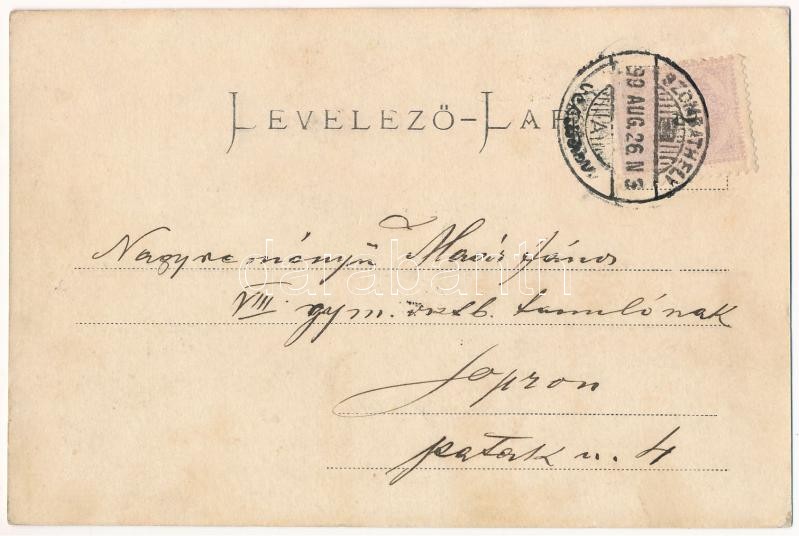 LEVELEZŐ-LAP
SZOMBATHELY
99 AUG. 26. N 3
Nagyreményű Maár János
VIII gym. oszt. tanulónak
Sopron
patak u. 4
darabanth